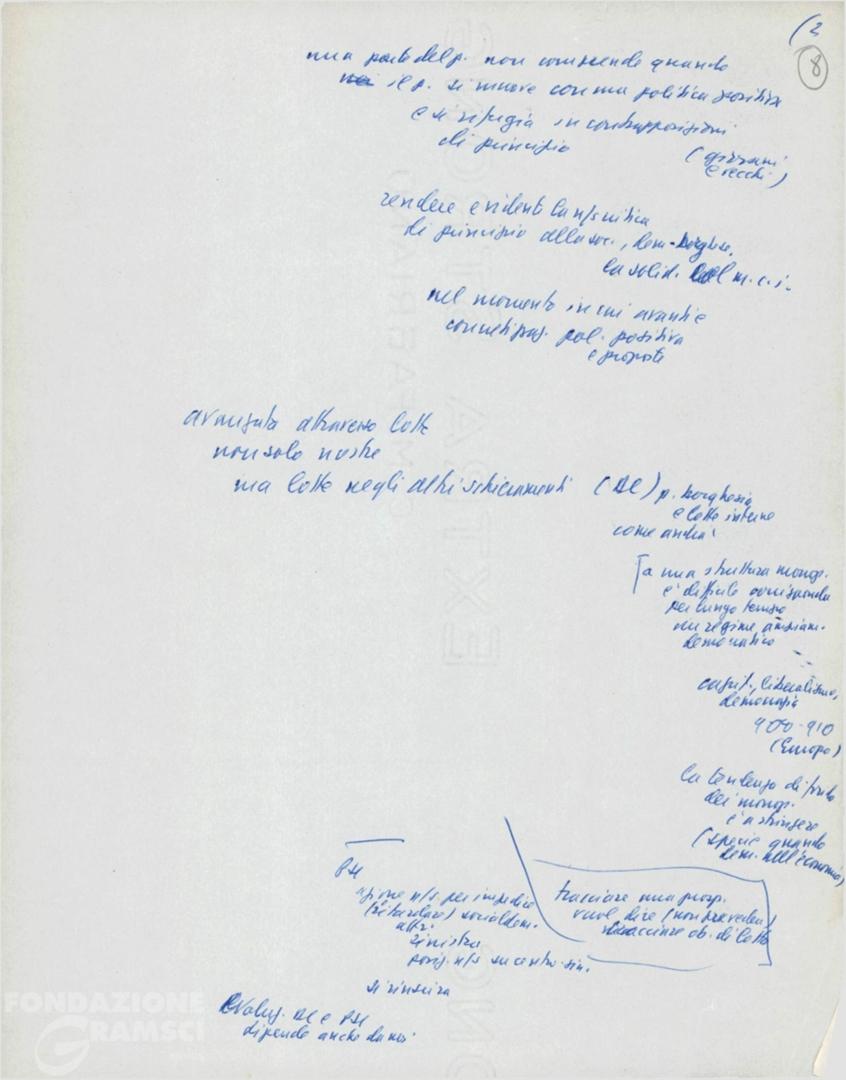 (2
8
una parte del p. non comprende quando
il p. si muove con una politica positiva
e si rifugia in contrapposizioni
di principio
(giovani
e vecchi)
rendere evidente la n/s critica
di principio alla soc., dem-borghese,
la solid. del m.c.i.
nel momento in cui avanti e
pol. positiva
e proposte
avanzata attraverso lotte
non solo nostre
ma lotte negli altri schieramenti (DC) p. borghesia
e lotte interne
come andrà
a una struttura monop.
è difficile corrisponda
per lungo tempo
un regime
democratico
capit., liberalismo,
democrazia
900-910
(Europa)
la tendenza di fondo
dei monop.
è a stringere
(specie quando
dem. nell'economia)
PSI
azione n/s per impedire
(ritardare) socialdem.
altri
sinistra
posiz. n/s su centro-sin.
tracciare una prosp.
vuol dire (non prevedere)
tracciare ob. di lotta
si rinscirà
Evoluz. DC e PSI
dipende anche da noi
FONDAZIONE
GRAMSCI